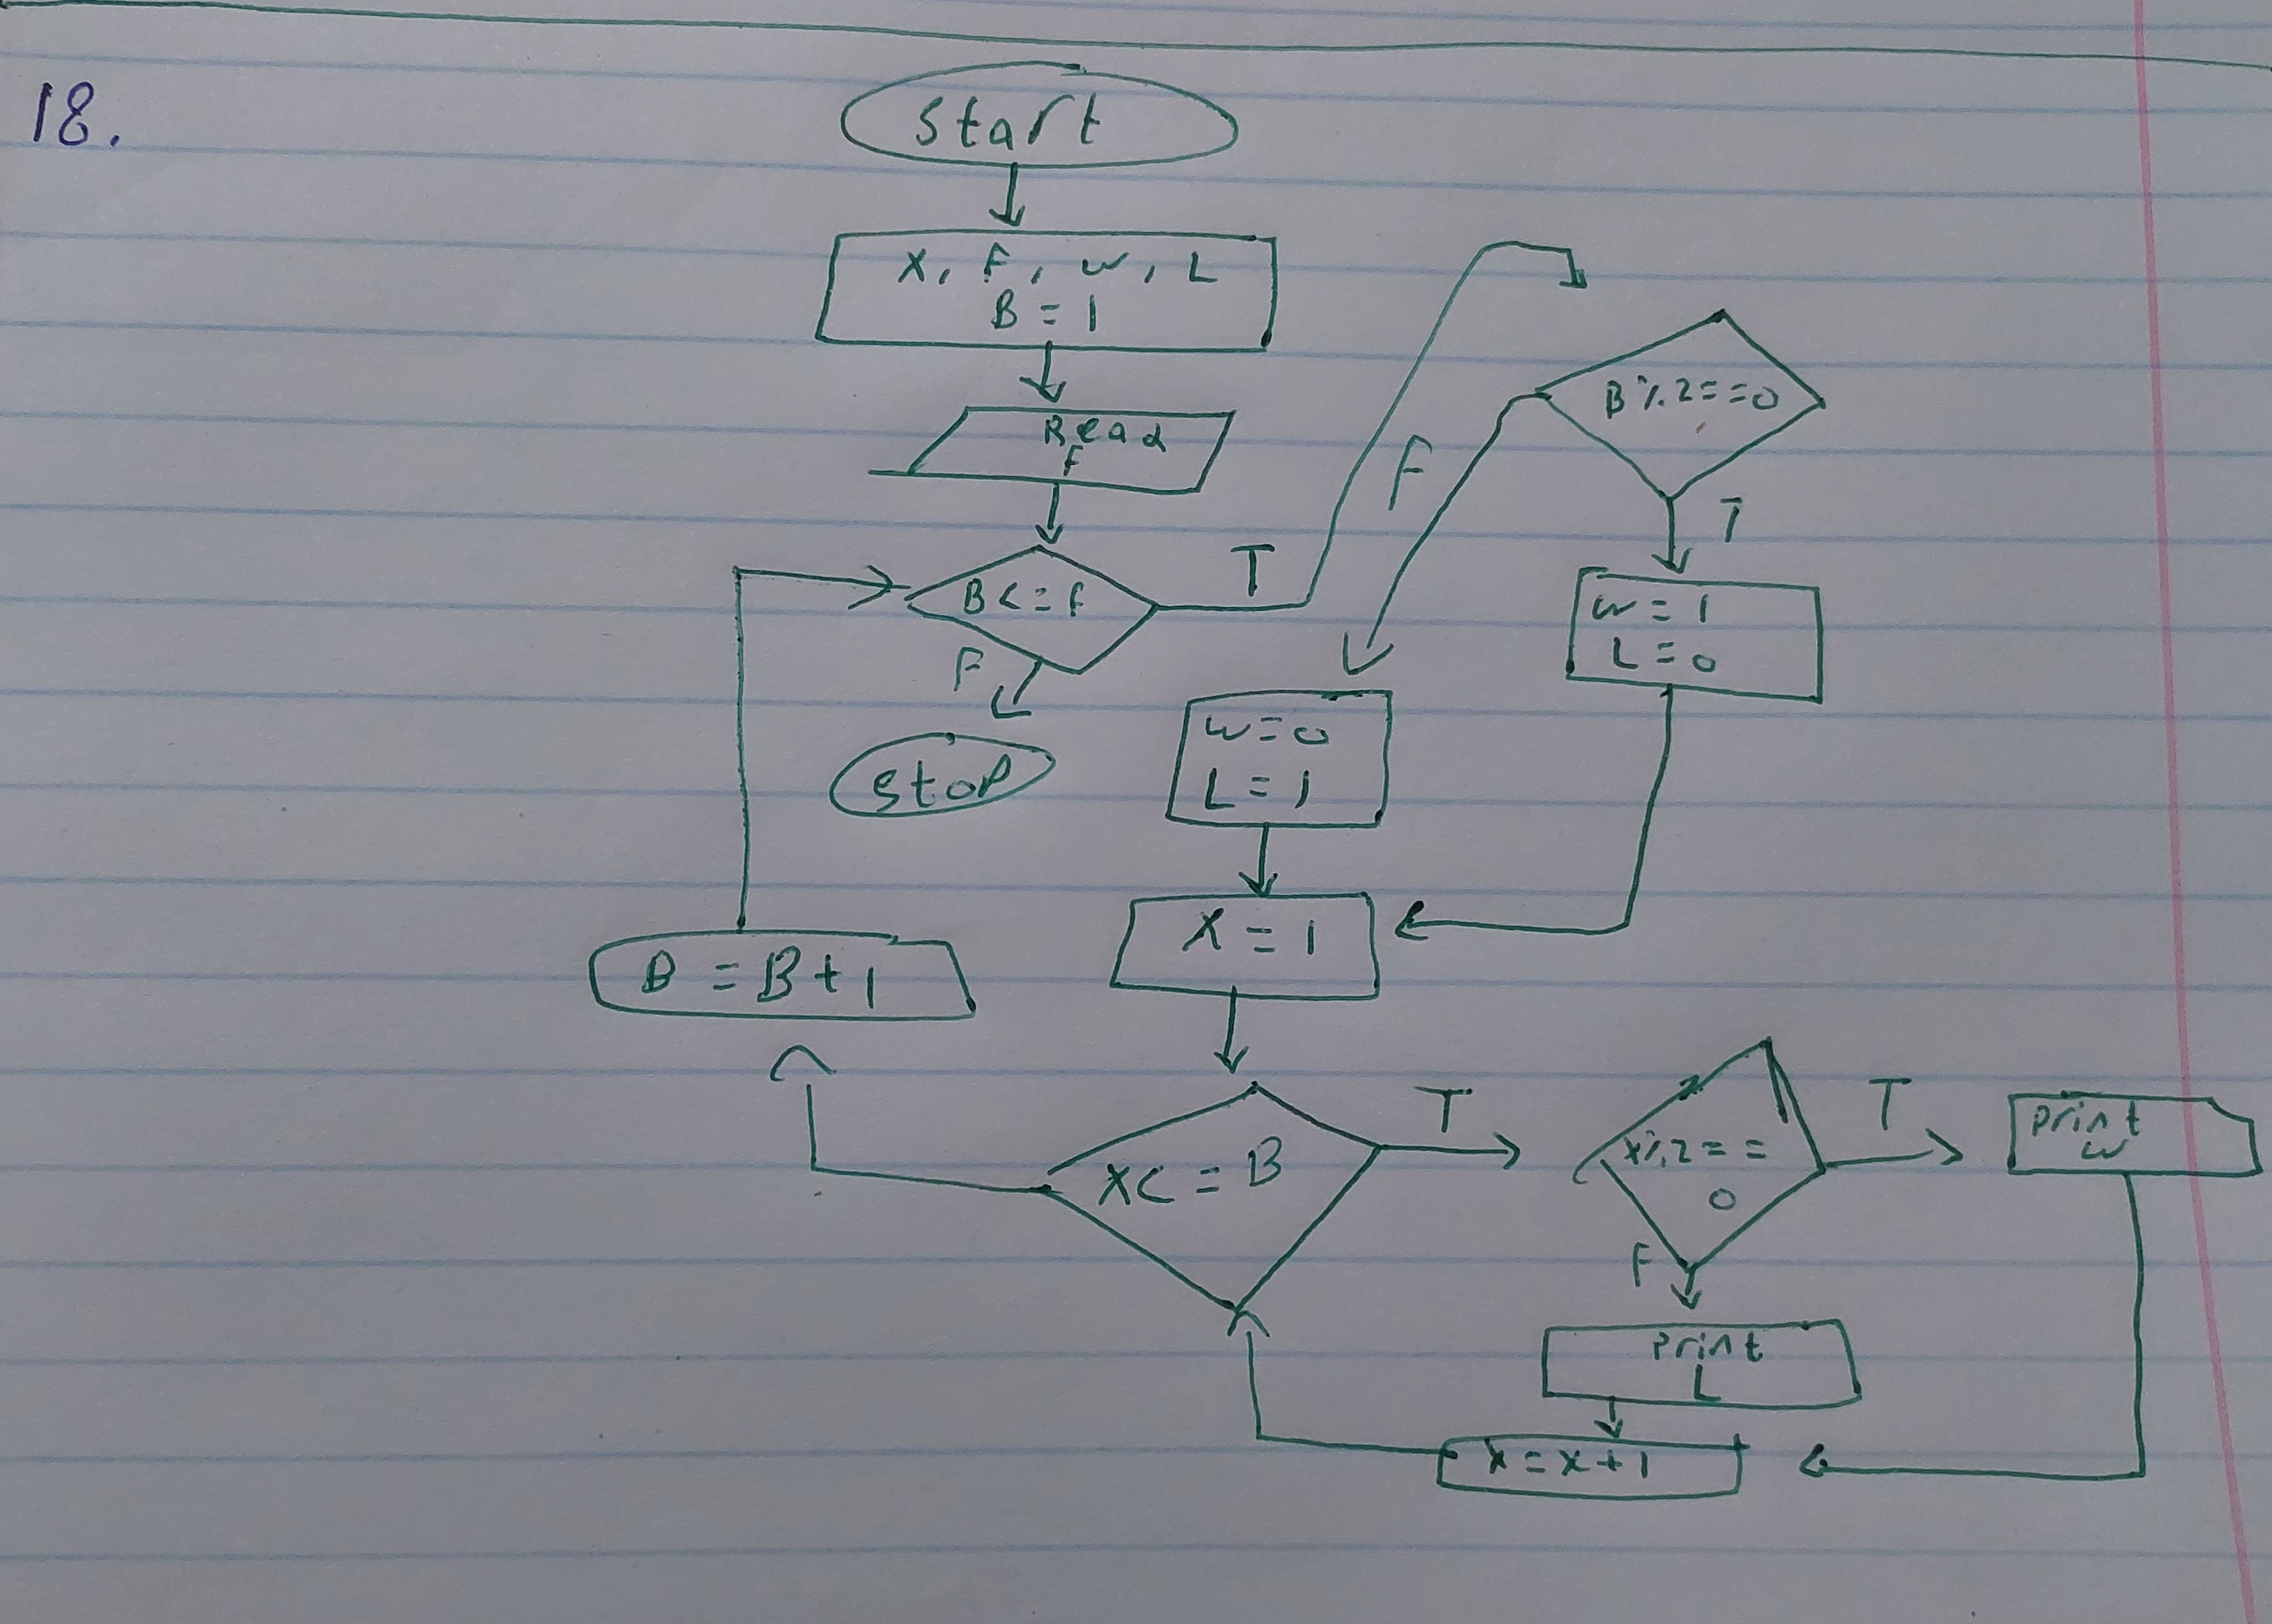 18.
start
X, F, w, L
B = 1
Read
F
B <= F
T
F
stop
B%2==0
F
T
w = 1
L = 0
w = 0
L = 1
X = 1
B = B+1
X <= B
T
X%2==
0
T
print
w
F
print
L
X = X+1